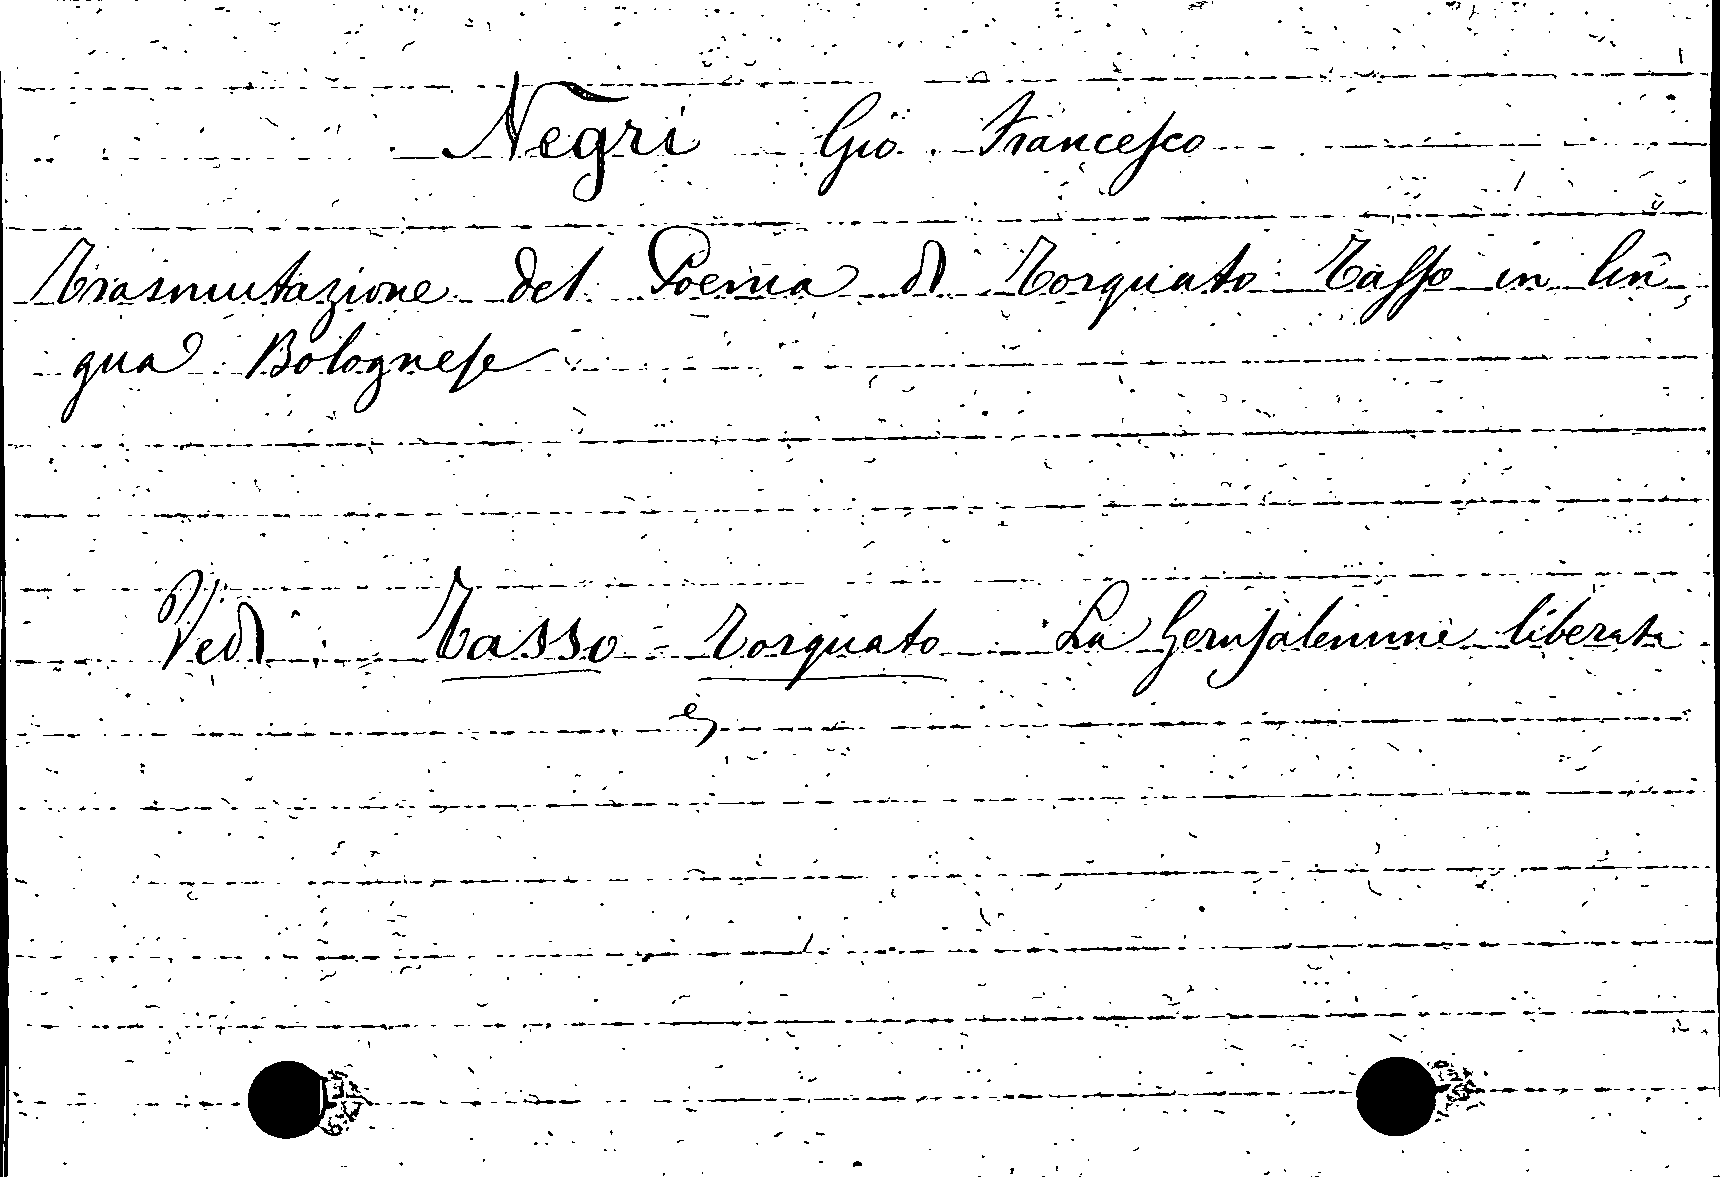 Negri Gio. Francesco
Trasmutazione del Poema di Torquato Tasso in lin,
gua Bolognese
Vedi: Tasso Torquato La Gerusalemme liberata